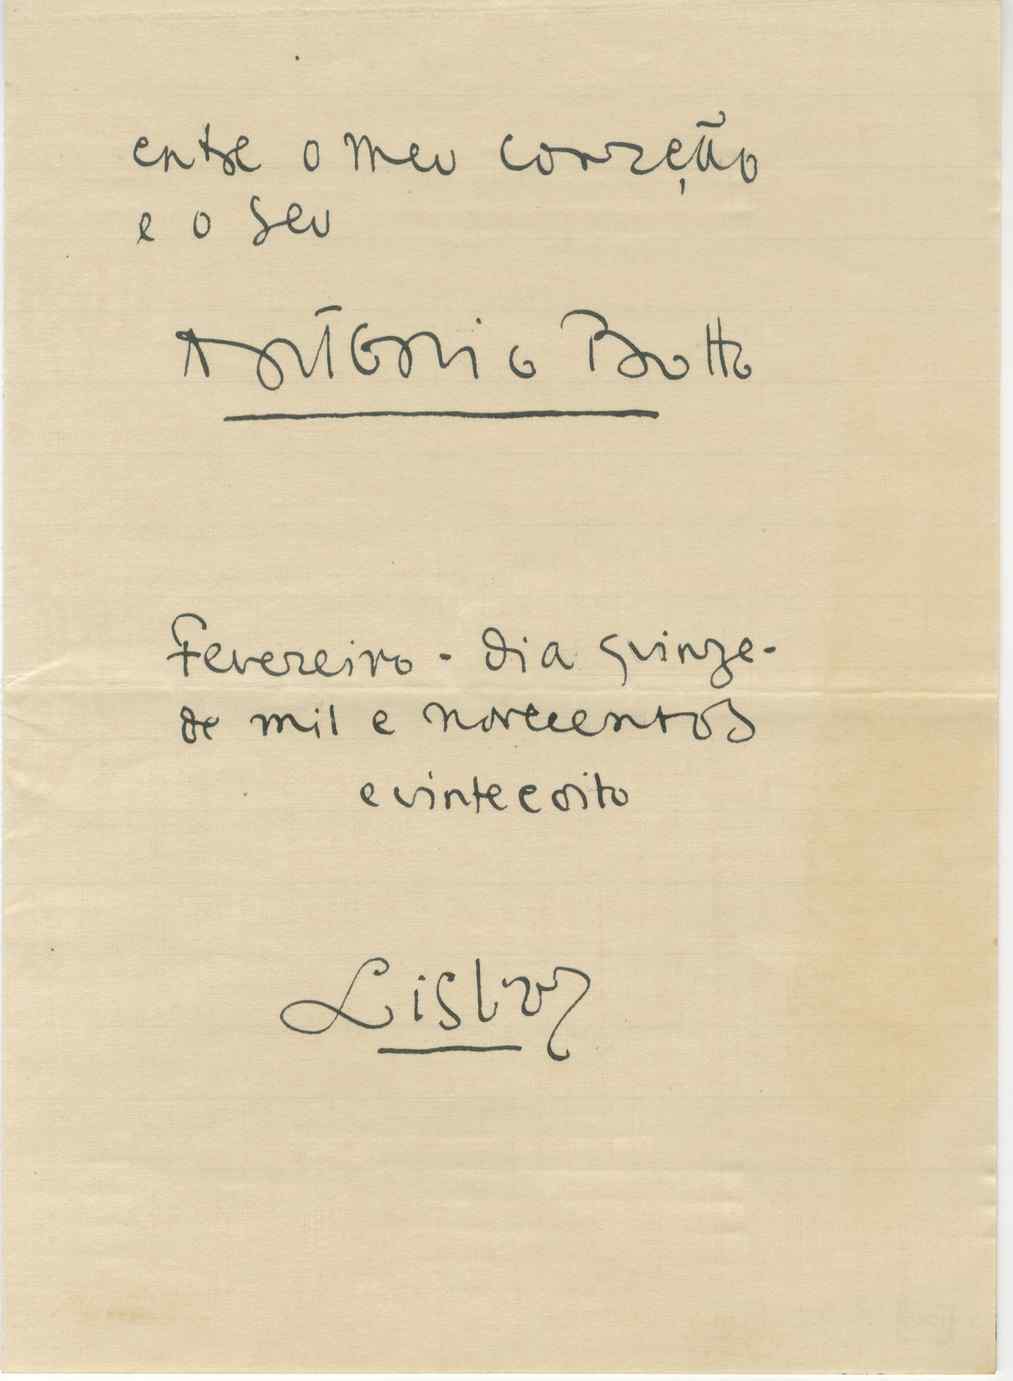 entre o meu coração
e o seu
António Botto
Fevereiro - dia quinze -
de mil e novecentos
e vinte e oito
Lisboa